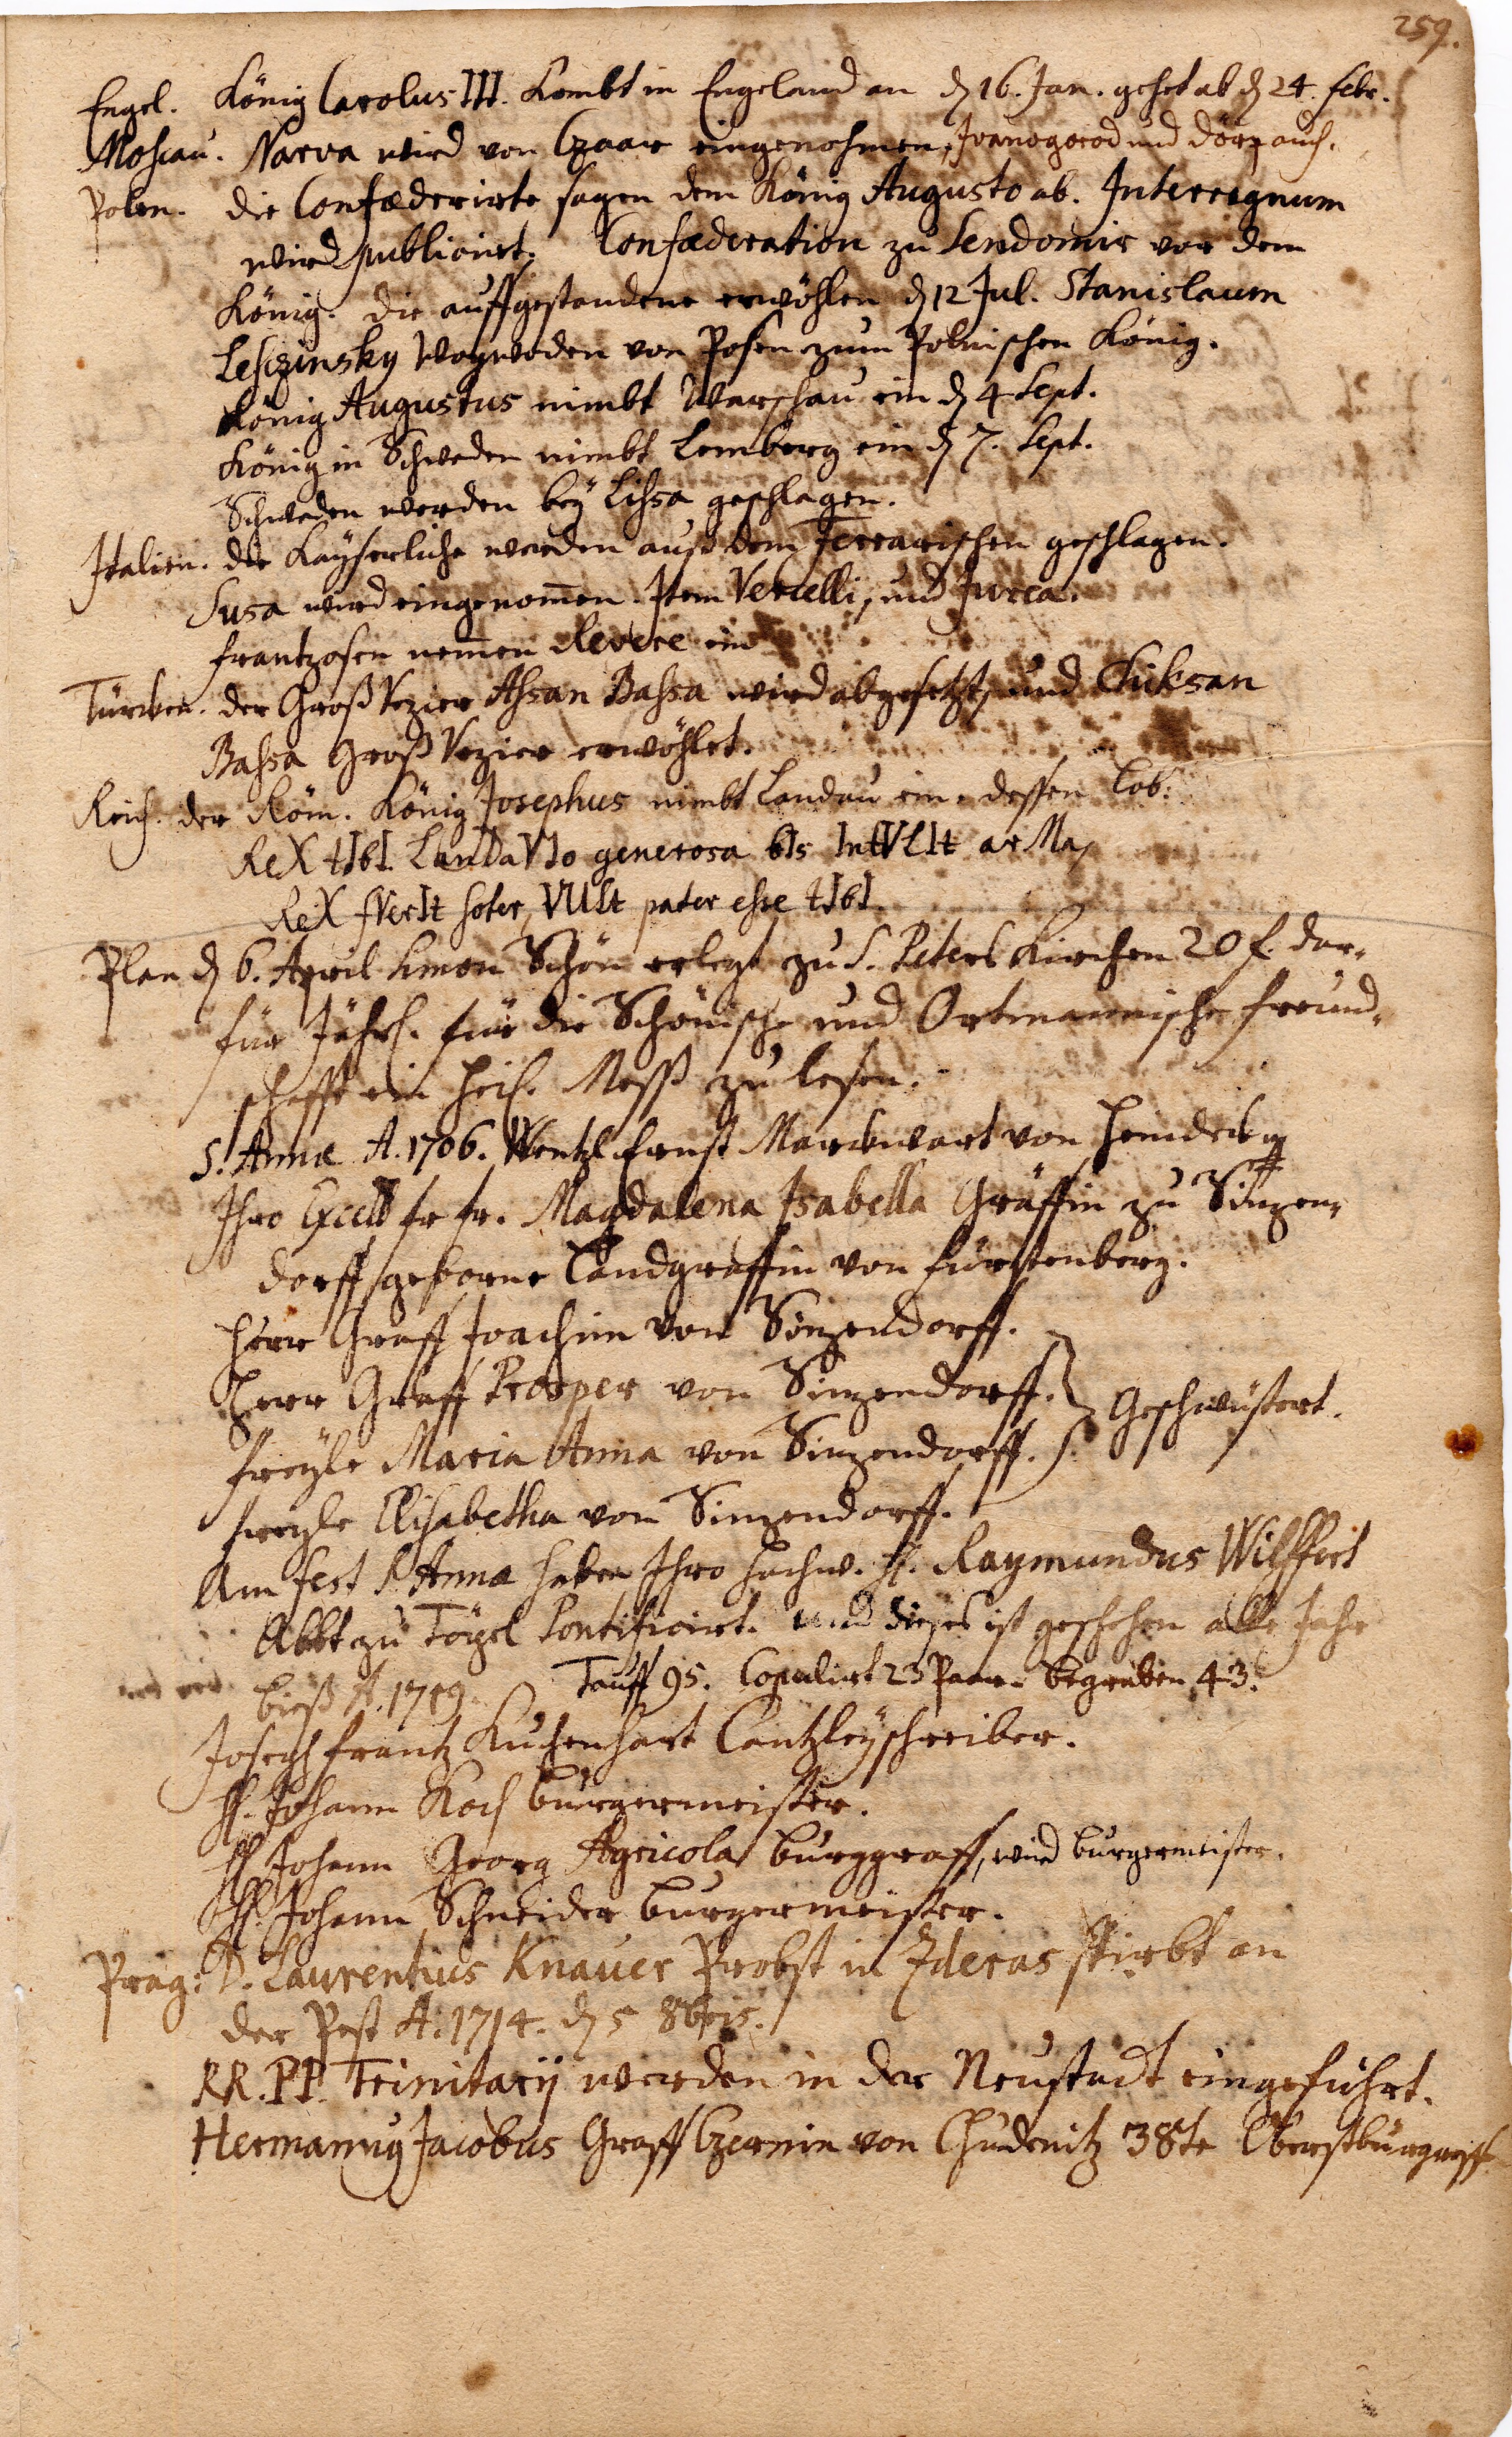 259.
Engel. König Carolus III. Kombt in Engeland an d 16. Jan. gehet ab d 24. Febr.
Moscau. Narva wird von Czaar eingenohmen, Ivanogorod und Dörp auch.
Polen. die Confæderirte sagen dem König Augusto ab. Interregnum
wird publicirt. Confæderation zu Sendomir vor dem
König. die auffgestandene erwöhlen d 12 Jul. Stanislaum
Lesczinsky Woywoden von Posen zum Polnischen König.
König Augustus nimbt Warschau ein d 4 Sept.
König in Schweden nimbt Lemberg ein d 7. Sept.
Schweden werden bey Lissa geschlagen.
Italien. die Kayserliche werden auß dem Ferrarischen geschlagen.
Susa wird eingenommen. Item Vercelli, und Jvrea.
Frantzosen nemen Revere ein
Türcken. der Groß Vezier Assan Bassa wird abgesetzt, und
Bassa Groß Vezier erwöhlet.
Reich. der Röm. König Josephus nimbt Landau ein. dessen Lob:
ReX tIbI LanDaVIo generosa bIs IntVLIt arMa,
ReX fVerIt soter, VULt pater esse tIbI.
Plan d 6. April Simon Schön erlegt zu S. Peters Kirchen 20 f. dar„
für Jährl. für die Schönische und Ortmannische freund„
schafft ein heil. Meß zu lesen.
S. Annæ A. 1706. Wentzl Ernst Marckwart von
Ihro Excell fr fr. Magdalena Isabella Gräffin zu Sinzen„
dorff, geborne Landgraffin von Fürstenberg.
Herr Graff Joachim von Sinzendorff.
Herr Graff Prosper von Sinzendorff. } Geschwüstert.
Freyle Maria Anna von Sinzendorff.
Freyle Elisabetha von Sinzendorff.
Am fest S. Annæ haben Ihro Hochw. H. Raymundus Wilffert
Abbt zu Töpel Pontificirt. und dieses ist geschehen alle Jahr
bieß A. 1719. Tauff 95. Copulirt 23 Paar. begraben 43.
Joseph Frantz Kuchenhart Cantzleyschreiber.
H. Johann Koch burgermeister.
H. Johann Georg Agricola burggraff, wird burgermeister.
H. Johann Schneider burgermeister.
Prag: D. Laurentius Knauer Probst in Zderas stirbt an
der Pest A. 1714. d 5 8bris.
RR. PP. Trinitarij werden in der Neustadt eingeführt.
Hermannus Jacobus Graff Czernin von Chudenitz 38te Oberstburgraff